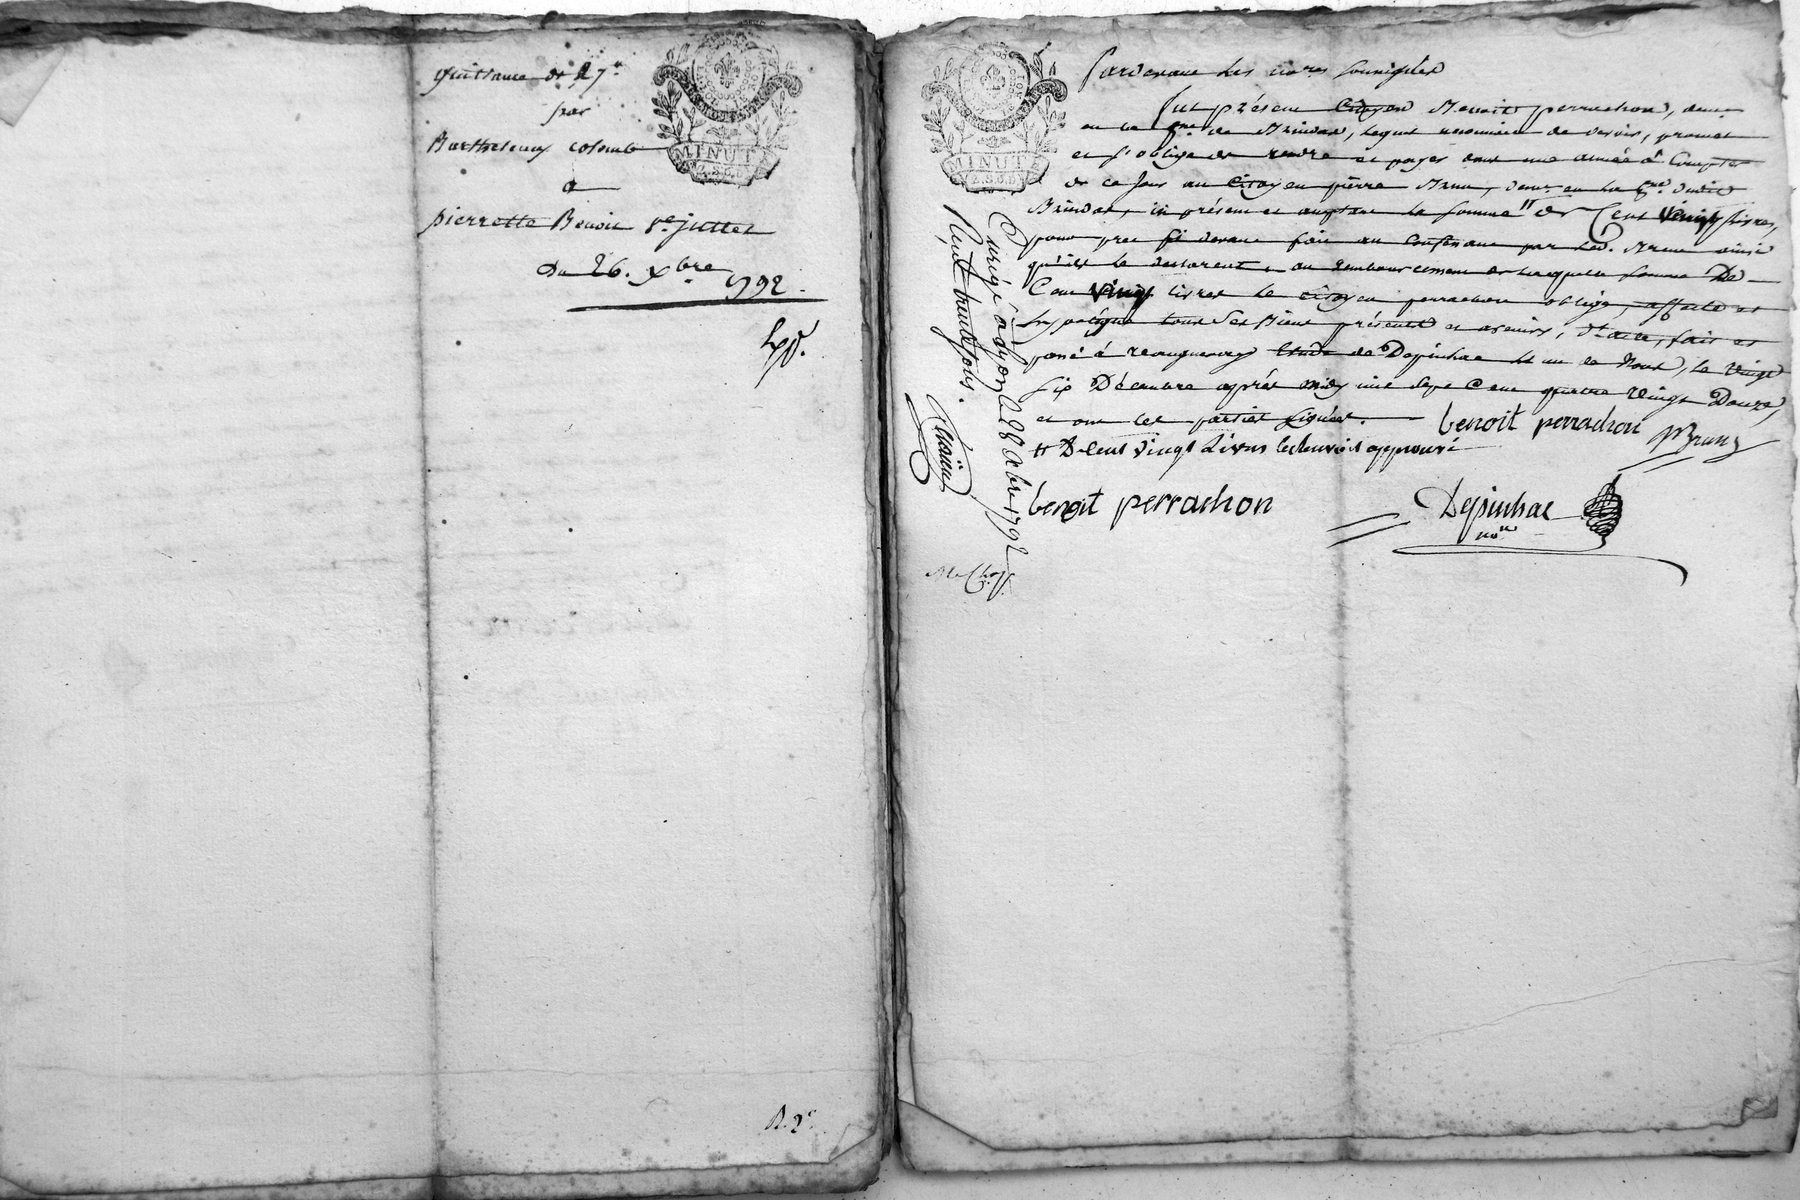 quittance de 27#
par
Barthelemy colomb
a
pierrette Benoit Ve juttet
Du 26. xbre
1792.
MINUTE
R. 2e
MINUTE
Pardevant Les nores soussignés
fut présent Citoyen Benoit perrachon, demt
en la pse de Brindas, Lequel reconnoit de devoir, promet
et s'oblige de rendre et payer dans une année à Compter
de ce jour au Citoyen pierre Brun, demt en la pse dudit
Brindas, ici présent et acceptant la somme # de Cent vingt livres,
pour prêt ci devant fait au Confessant par led. Brun ainsi
qu'ils le declarent, au remboursement de laquelle somme De
Cent vingt livres le citoyen perrachon oblige, affecte et
hypotèque tous ses Biens présents et avenirs, dt acte, fait et
passé à vaugneray Etude de Depinhac L'un de Nous, le vingt
six Décembre après midy mil sept Cent quatre vingt Douze,
et ont les parties signées.
benoit perrachon
# De cent vingt Livres approuvé
benoit perrachon
Depinhac
nore
Enregé à Lyon le 28 xbre 1792
Reçu trente sols.